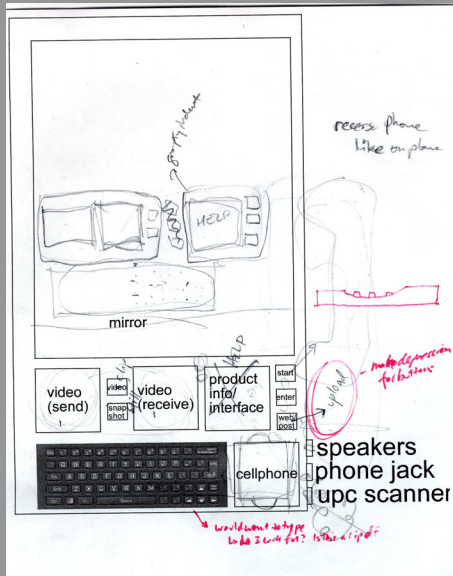 recess phone
like on plane
HELP
mirror
HELP
video
(send)
video
snap
shot
video
(receive)
product
info/
interface
start
enter
web
post
upload
make depression
for buttons
cellphone
speakers
phone jack
upc scanner
would want to type